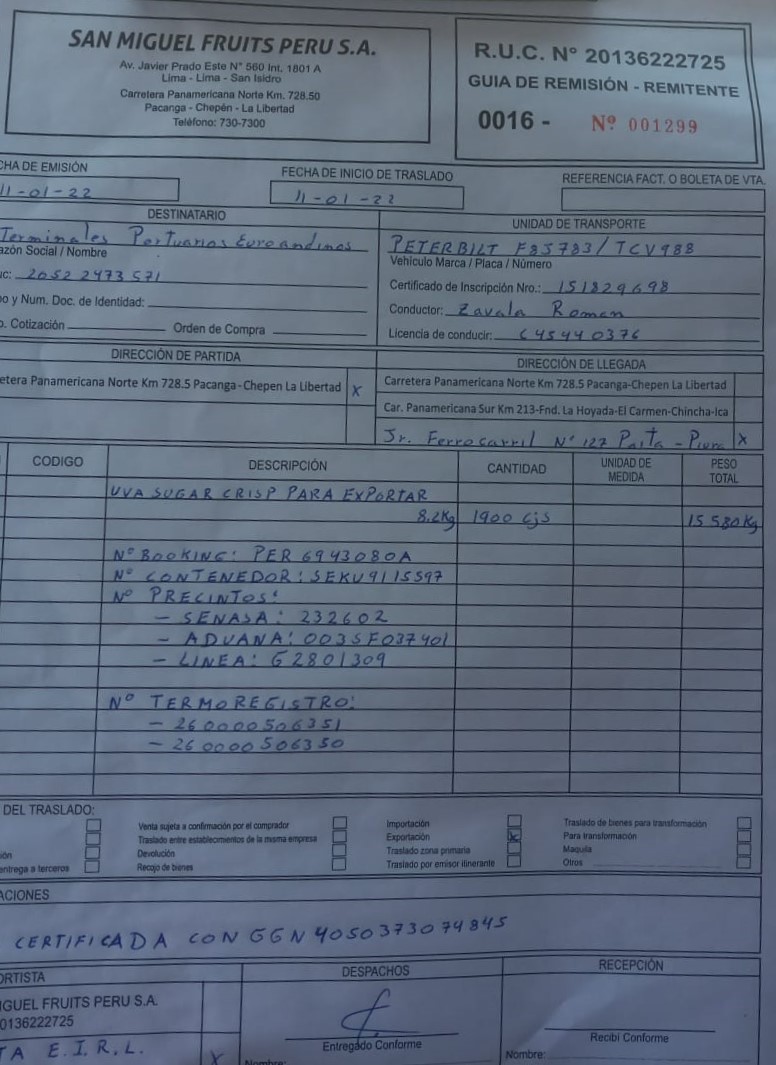 SAN MIGUEL FRUITS PERU S.A.
Av. Javier Prado Este N° 560 Int. 1801 A
Lima - Lima - San Isidro
Carretera Panamericana Norte Km. 728.50
Pacanga - Chepén - La Libertad
Teléfono: 730-7300
R.U.C. N° 20136222725
GUIA DE REMISIÓN - REMITENTE
0016 - Nº 001299
CHA DE EMISIÓN
11-01-22
FECHA DE INICIO DE TRASLADO
11-01-22
REFERENCIA FACT. O BOLETA DE VTA.
DESTINATARIO
Terminales Portuarios Euroandinos
azón Social / Nombre
uc: 20522473571
po y Num. Doc. de Identidad:
o. Cotización Orden de Compra
UNIDAD DE TRANSPORTE
PETERBILT F8S783/TCV988
Vehículo Marca / Placa / Número
Certificado de Inscripción Nro.: 151829698
Conductor: Zavala Roman
Licencia de conducir: C45440376
DIRECCIÓN DE PARTIDA
etera Panamericana Norte Km 728.5 Pacanga-Chepen La Libertad X
DIRECCIÓN DE LLEGADA
Carretera Panamericana Norte Km 728.5 Pacanga-Chepen La Libertad
Car. Panamericana Sur Km 213-Fnd. La Hoyada-El Carmen-Chincha-Ica
Jr. Ferrocarril N° 127 Paita - Piura X
CODIGO DESCRIPCIÓN CANTIDAD UNIDAD DE MEDIDA PESO TOTAL
UVA SUGAR CRISP PARA EXPORTAR
8.2Kg 1900 cjs 15 580Kg
N° BOOKING: PER 6943080A
N° CONTENEDOR: SEKU9115597
N° PRECINTOS:
- SENASA: 232602
- ADUANA: 003SF037401
- LINEA: G2801309
N° TERMOREGISTRO:
- 260000506351
- 260000506350
DEL TRASLADO:
ión
entrega a terceros
Venta sujeta a confirmación por el comprador
Traslado entre establecimientos de la misma empresa
Devolución
Recojo de bienes
Importación
Exportación X
Traslado zona primaria
Traslado por emisor itinerante
Traslado de bienes para transformación
Para transformación
Maquila
Otros
ACIONES
CERTIFICADA CON GGN 4050373074845
ORTISTA
IGUEL FRUITS PERU S.A.
0136222725
TA E.I.R.L. X
DESPACHOS
Entregado Conforme
Nombre:
RECEPCIÓN
Recibí Conforme
Nombre: